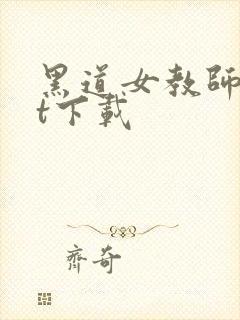 黑道女教師
t下載
齊奇